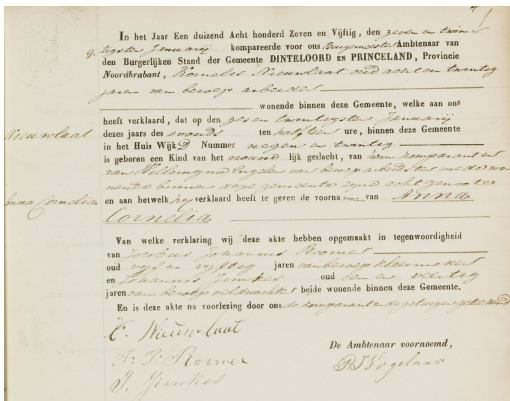 In het Jaar Een duizend Acht honderd Zeven en Vijftig, den zeven en twin
tigsten Januarij kompareerde voor ons Burgemeester Ambtenaar van
den Burgerlijken Stand der Gemeente DINTELOORD EN PRINCELAND, Provincie
Noordbrabant, Kornelis Nieuwlaat oud acht en twintig
jaren van beroep arbeider
wonende binnen deze Gemeente, welke aan ons
heeft verklaard, dat op den zes en twintigsten Januarij
Nieuwlaat
dezes jaars des avonds ten half tien ure, binnen deze Gemeente
in het Huis Wijk D Nummer negen en twintig
is geboren een Kind van het vrouwelijk geslacht, van hem komparant en
van Willemyna van beroep arbeidster mede wo
nende binnen deze gemeente zynde echtgenoote
Anna Cornelia
en aan hetwelk hij verklaard heeft te geven de voorname van Anna
Cornelia
Van welke verklaring wij deze akte hebben opgemaakt in tegenwoordigheid
van Jacobus Johannis Roomer
oud vijf en vijftig jaren van beroep kleermaker
en Johannis Jimkes oud een en veertig
jaren van beroep veldwachter beide wonende binnen deze Gemeente.
En is deze akte na voorlezing door ons de komparant en de getuigen geteekend
C. Nieuwlaat
J. J. Roomer
J. Jimkes
De Ambtenaar voornoemd,
P. J. Vogelaar